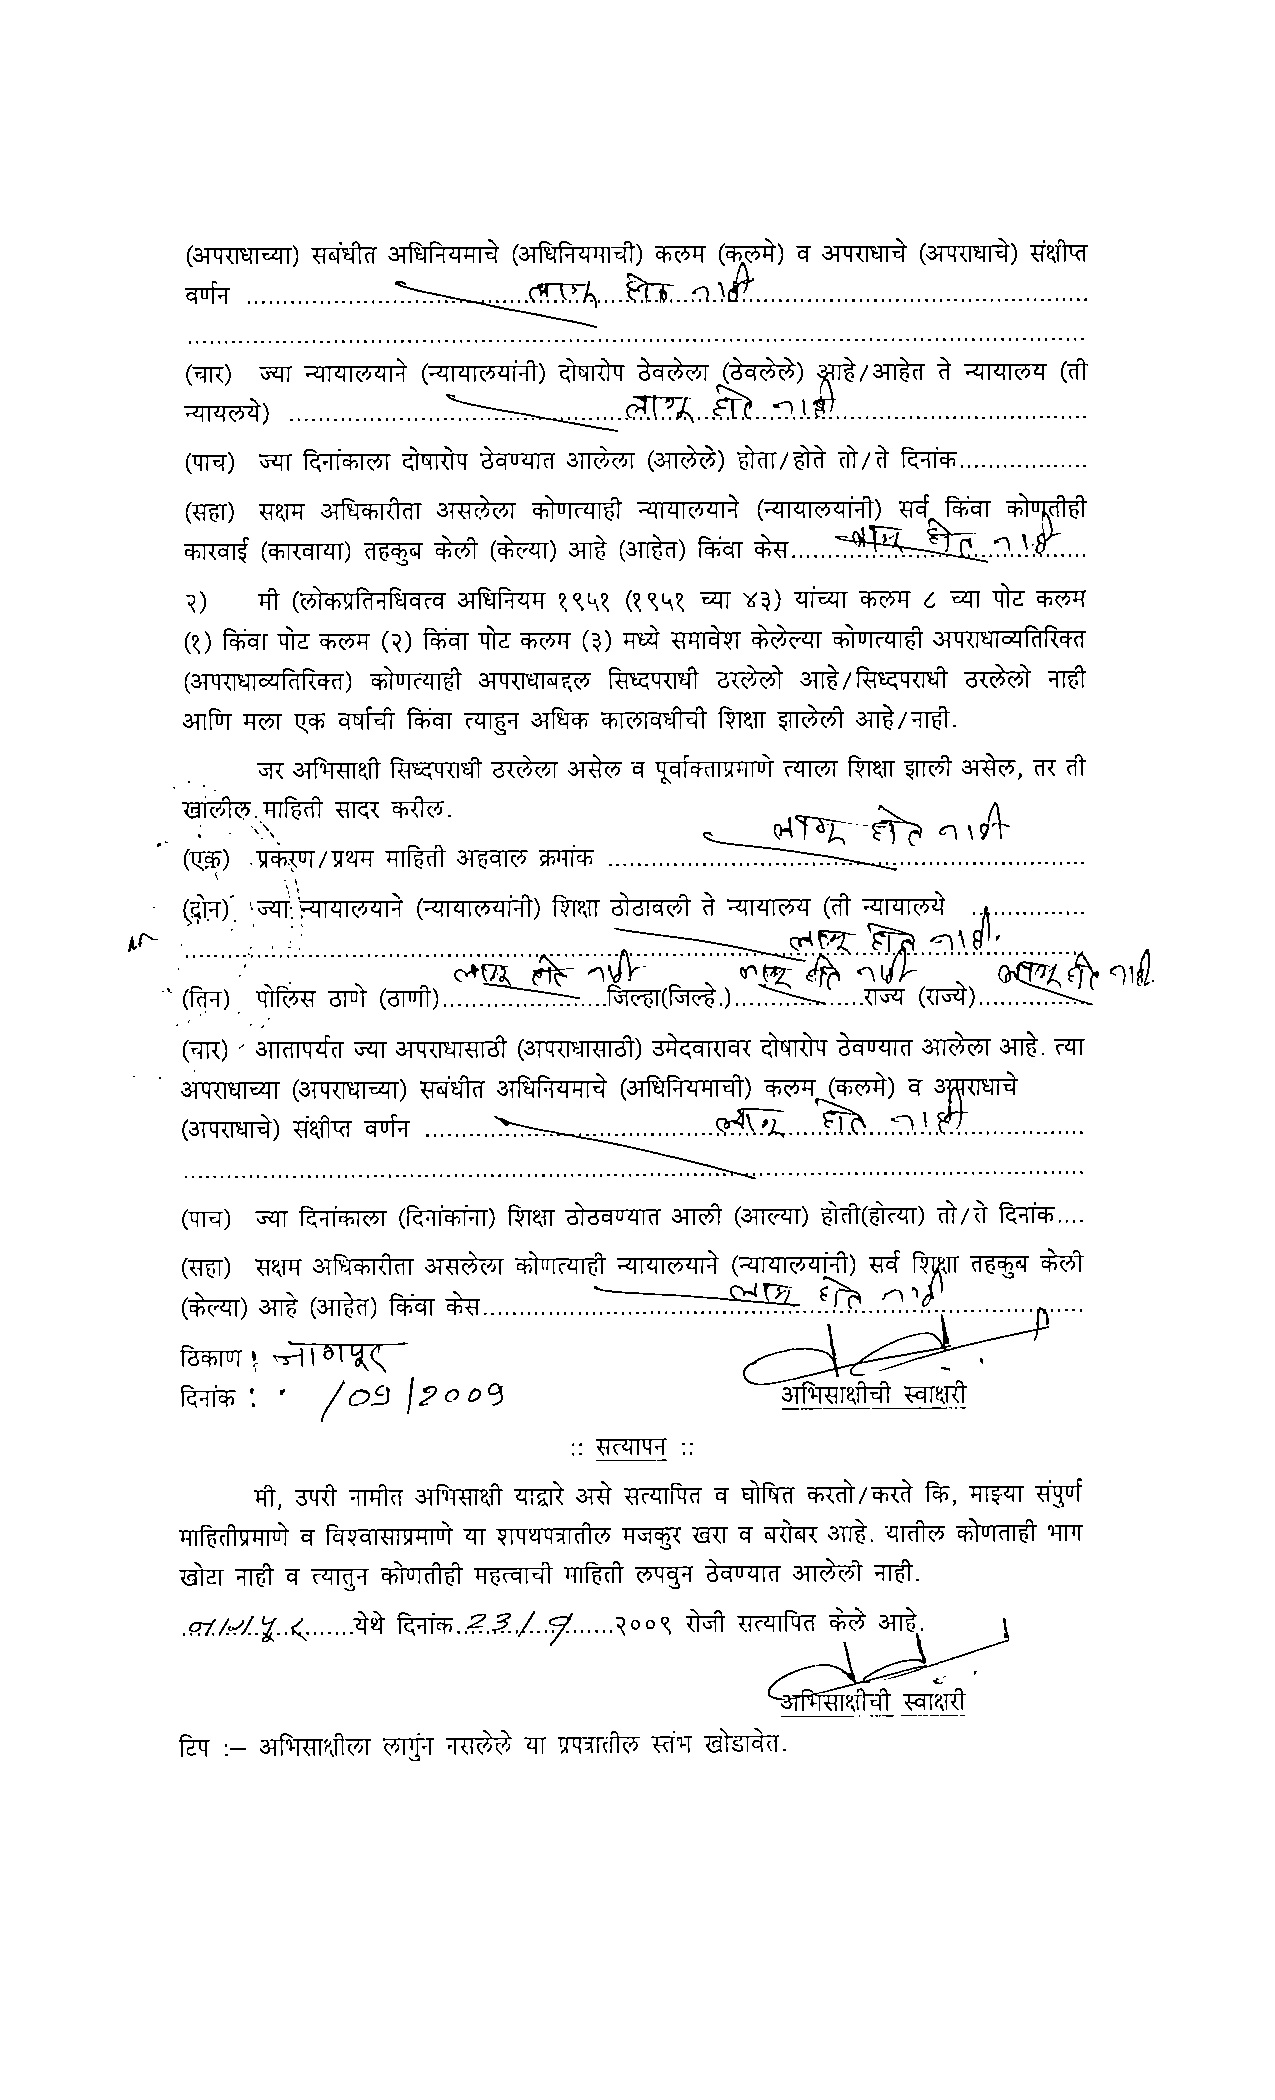 (अपराधाच्या) सबंधीत अधिनियमाचे (अधिनियमाची) कलम (कलमे) व अपराधाचे (अपराधाचे) संक्षीप्त
वर्णन ........ लागू होत नाही ........
(चार) ज्या न्यायालयाने (न्यायालयांनी) दोषारोप ठेवलेला (ठेवलेले) आहे/आहेत ते न्यायालय (ती
न्यायलये) ........ लागू होत नाही ........
(पाच) ज्या दिनांकाला दोषारोप ठेवण्यात आलेला (आलेले) होता/होते तो/ते दिनांक..................
(सहा) सक्षम अधिकारीता असलेला कोणत्याही न्यायालयाने (न्यायालयांनी) सर्व किंवा कोणतीही
कारवाई (कारवाया) तहकुब केली (केल्या) आहे (आहेत) किंवा केस........ लागू होत नाही ........
२) मी (लोकप्रतिनधिवत्व अधिनियम १९५१ (१९५१ च्या ४३) यांच्या कलम ८ च्या पोट कलम
(१) किंवा पोट कलम (२) किंवा पोट कलम (३) मध्ये समावेश केलेल्या कोणत्याही अपराधाव्यतिरिक्त
(अपराधाव्यतिरिक्त) कोणत्याही अपराधाबद्दल सिध्दपराधी ठरलेलो आहे/सिध्दपराधी ठरलेलो नाही
आणि मला एक वर्षाची किंवा त्याहुन अधिक कालावधीची शिक्षा झालेली आहे/नाही.
जर अभिसाक्षी सिध्दपराधी ठरलेला असेल व पूर्वाक्ताप्रमाणे त्याला शिक्षा झाली असेल, तर ती
खालील माहिती सादर करील.
(एक) प्रकरण/प्रथम माहिती अहवाल क्रमांक ........ लागू होत नाही ........
(दोन) ज्या न्यायालयाने (न्यायालयांनी) शिक्षा ठोठावली ते न्यायालय (ती न्यायालये ...............
........ लागू होत नाही. ........
(तिन) पोलिस ठाणे (ठाणी)........ लागू होत नाही ........जिल्हा(जिल्हे.)........ लागू होत नाही ........राज्य (राज्ये)........ लागू होत नाही.
(चार) आतापर्यत ज्या अपराधासाठी (अपराधासाठी) उमेदवारावर दोषारोप ठेवण्यात आलेला आहे. त्या
अपराधाच्या (अपराधाच्या) सबंधीत अधिनियमाचे (अधिनियमाची) कलम (कलमे) व अपराधाचे
(अपराधाचे) संक्षीप्त वर्णन ........ लागू होत नाही ........
(पाच) ज्या दिनांकाला (दिनांकांना) शिक्षा ठोठवण्यात आली (आल्या) होती(होत्या) तो/ते दिनांक....
(सहा) सक्षम अधिकारीता असलेला कोणत्याही न्यायालयाने (न्यायालयांनी) सर्व शिक्षा तहकुब केली
(केल्या) आहे (आहेत) किंवा केस........ लागू होत नाही ........
ठिकाण : नागपूर
दिनांक : /09/2009
अभिसाक्षीची स्वाक्षरी
:: सत्यापन ::
मी, उपरी नामीत अभिसाक्षी याद्वारे असे सत्यापित व घोषित करतो/करते कि, माझ्या संपुर्ण
माहितीप्रमाणे व विश्वासाप्रमाणे या शपथपत्रातील मजकुर खरा व बरोबर आहे. यातील कोणताही भाग
खोटा नाही व त्यातुन कोणतीही महत्वाची माहिती लपवुन ठेवण्यात आलेली नाही.
नागपुर.......येथे दिनांक..23/9.......२००९ रोजी सत्यापित केले आहे.
अभिसाक्षीची स्वाक्षरी
टिप :– अभिसाक्षीला लागुंन नसलेले या प्रपत्रातील स्तंभ खोडावेत.